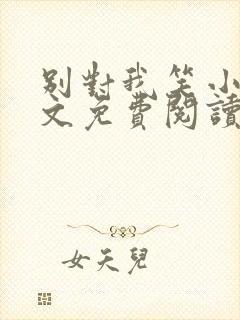 別對我笑小
文免費閱讀
女天兒